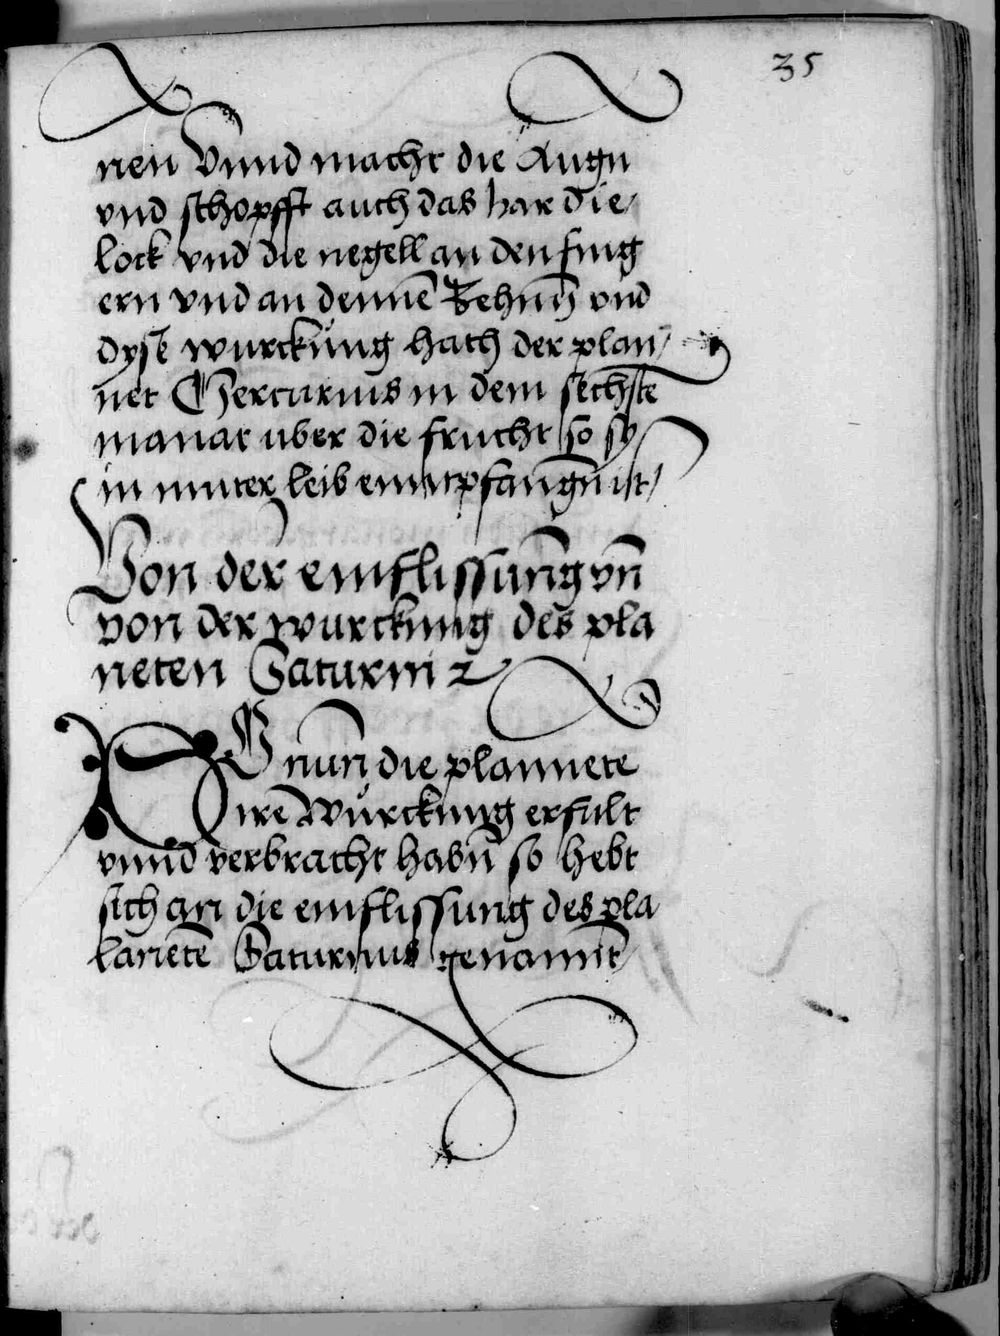 35
nen Vnnd macht die Augn
vnd schopfft auch das har die
lock vnd die negell an den fing
ern vnd an dennē Zehnn vnd
dyse wurckung hath der plan/
net Mercurius in dem sechste
manat uber die frucht so sy
in muter leib enntpfangn ist/
Von der einflissung vn̄
von der wurckung des pla
neten Saturni 2
SO nun die plannete
ire wurckung erfult
vnnd verbracht habn̄ so hebt
sich an die einflissung des pla
lanetē Saturnus genannt/